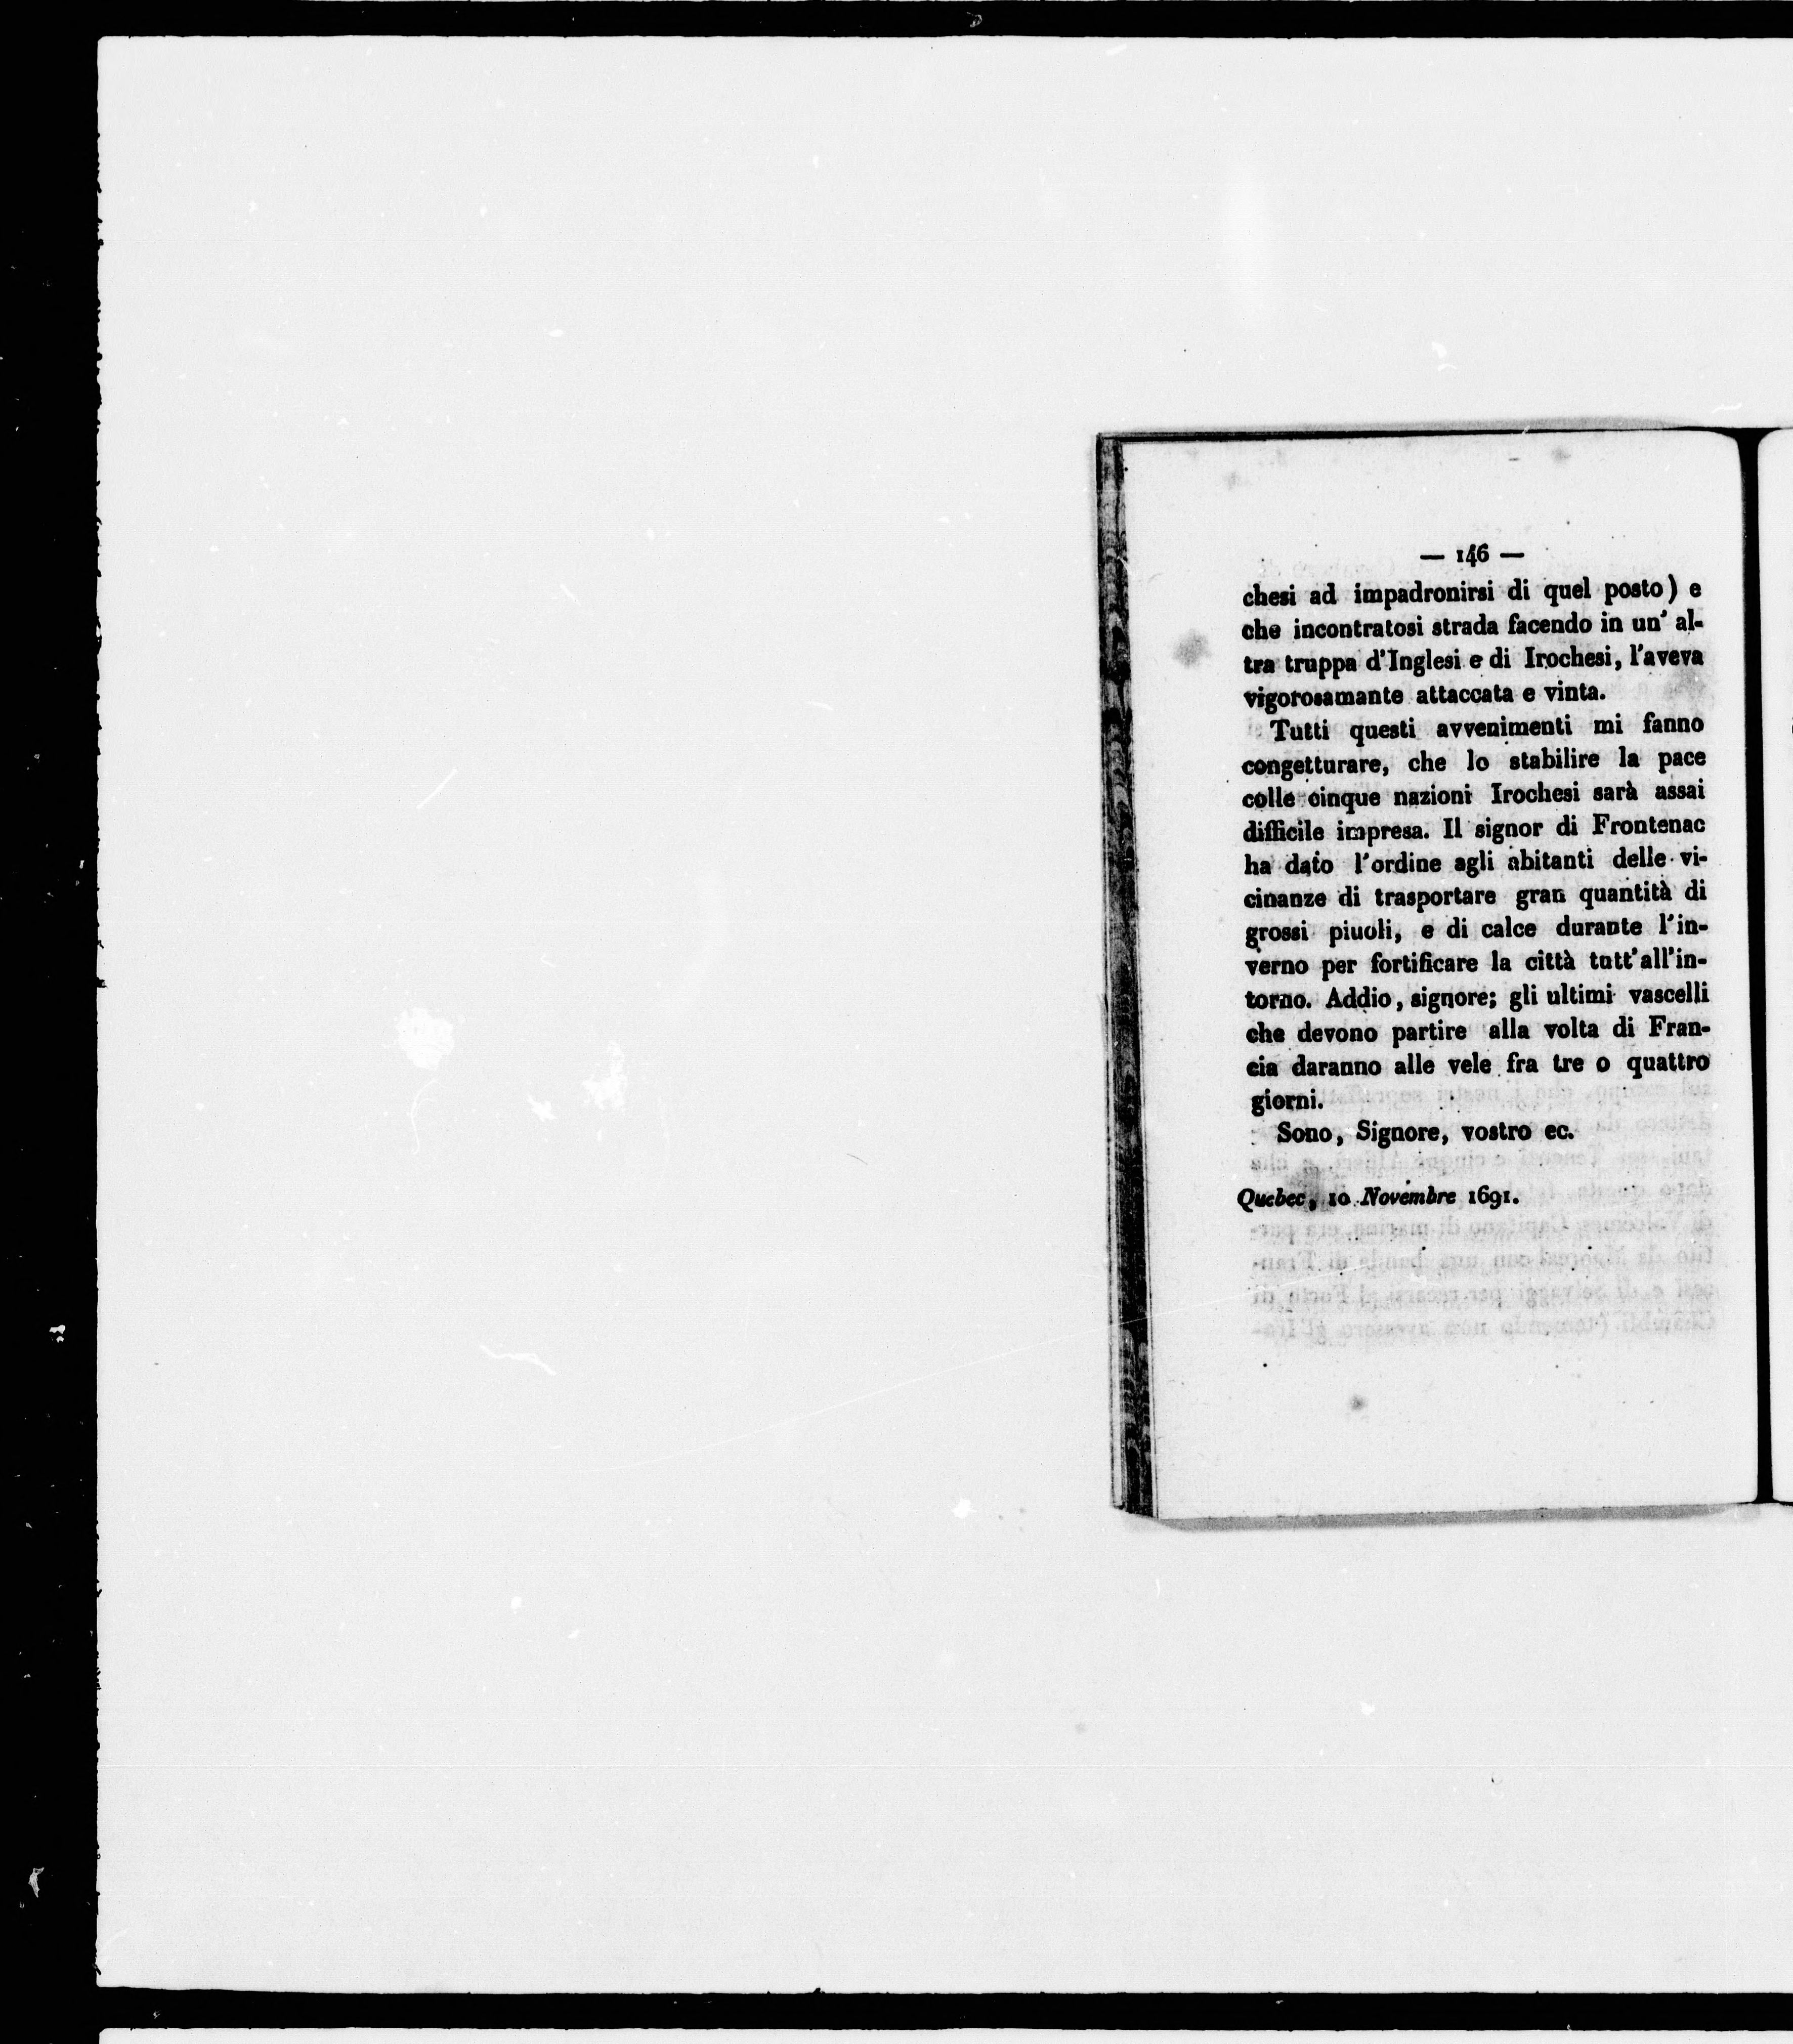 — 146 —
chesi ad impadronirsi di quel posto) e
che incontratosi strada facendo in un' al-
tra truppa d'Inglesi e di Irochesi, l'aveva
vigorosamante attaccata e vinta.
Tutti questi avvenimenti mi fanno
congetturare, che lo stabilire la pace
colle cinque nazioni Irochesi sarà assai
difficile impresa. Il signor di Frontenac
ha dato l'ordine agli abitanti delle vi-
cinanze di trasportare gran quantità di
grossi piuoli, e di calce durante l'in-
verno per fortificare la città tutt'all'in-
torno. Addio, signore; gli ultimi vascelli
che devono partire alla volta di Fran-
cia daranno alle vele fra tre o quattro
giorni.
Sono, Signore, vostro ec.
Quebec, 10 Novembre 1691.